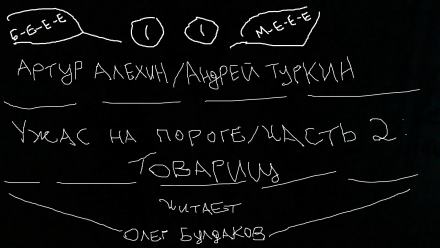 Б-Е-Е-Е ( ( М-Е-Е-Е
АРТУР АЛЕХИН/АНДРЕЙ ТУРКИН
УЖАС НА ПОРОГЕ/ЧАСТЬ 2:
ТОВАРИЩ
ЧИТАЕТ
ОЛЕГ БУЛДАКОВ